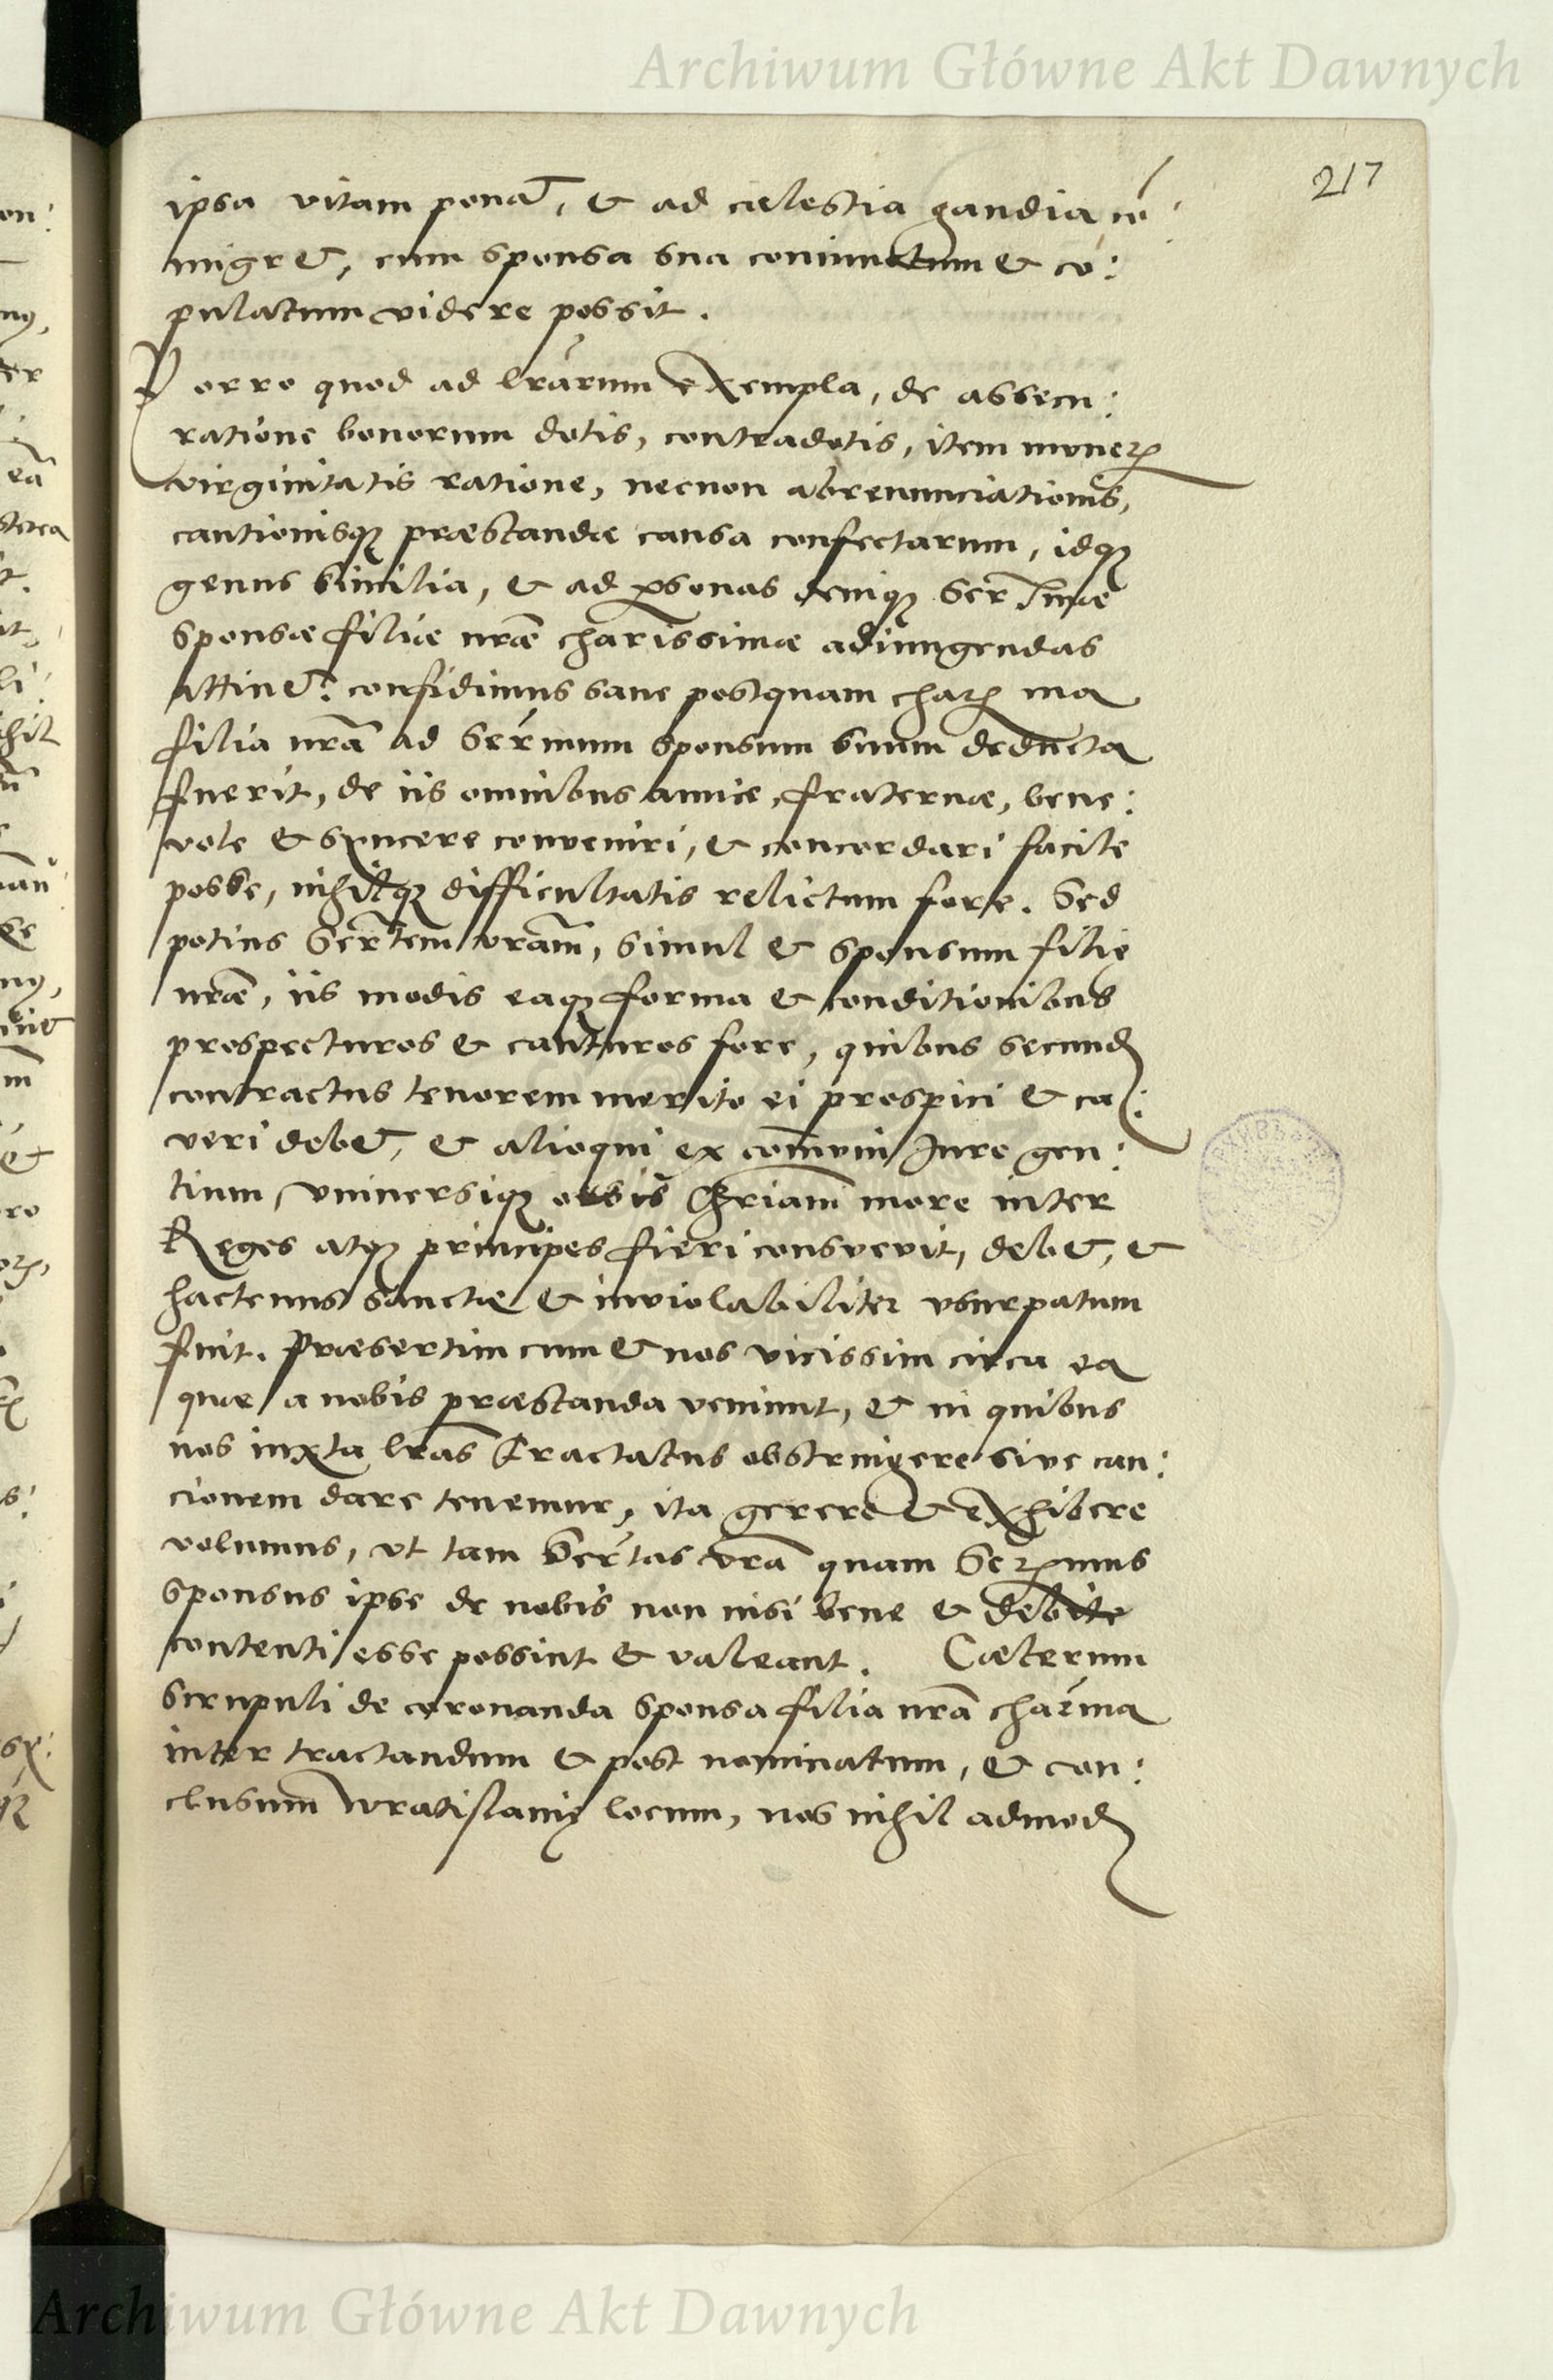 Archiwum Główne Akt Dawnych
217
ipsa vitam ponat, & ad cælestia gaudia cō:
migret, cum sponsa sua coniunctum & co:
pulatum videre possit.
Porro quod ad lrārum exempla, de assecu:
ratione bonorum dotis, contradotis, item muneꝝ
virginitatis ratione, necnon abrenunciationis,
cautionisqꝫ præstandæ causa confectarum, idqꝫ
genus similia, & ad ꝑsonas deniqꝫ Serᵐæ
sponsæ filiæ nrāe charissimæ adiungendas
attinet: confidimus sane postquam chaꝝma
filia nrā ad Serᵐum sponsum suum deducta
fuerit, de iis omnibus amice, fraternæ, bene:
vole & syncere conveniri, & concordari facile
posse, nihilqꝫ difficultatis relictum fore. Sed
potius Serᵗem vrām, simul & sponsum filię
nrāe, iis modis eaqꝫ forma & conditionibus
prospecturos & cauturos fore, quibus secund
contractus tenorem merito ei prospici & ca:
veri debet, & alioqui ex com̄uni Jure gen:
tium, vniuersiqꝫ orbis Chriani more inter
Reges atqꝫ principes fieri consvevit, debet, &
hactenus sanctæ & inviolabiliter vsurpatum
fuit. Præsertim cum & nos vicissim circa ea
quæ a nobis præstanda veniunt, & in quibus
nos iuxta lrās Tractatus obstringere sive cau:
cionem dare tenemur, ita gerere & exhibere
volumus, vt tam Serᵗas vrā quam Seꝝmus
sponsus ipse de nobis non nisi bene & debite
contenti esse possint & valeant. Cæterum
scrupuli de coronanda sponsa filia nrā charᵐa
inter tractandum & post nominatum, & con:
clusum Wratislauię locum, nos nihil admod
Archiwum Główne Akt Dawnych